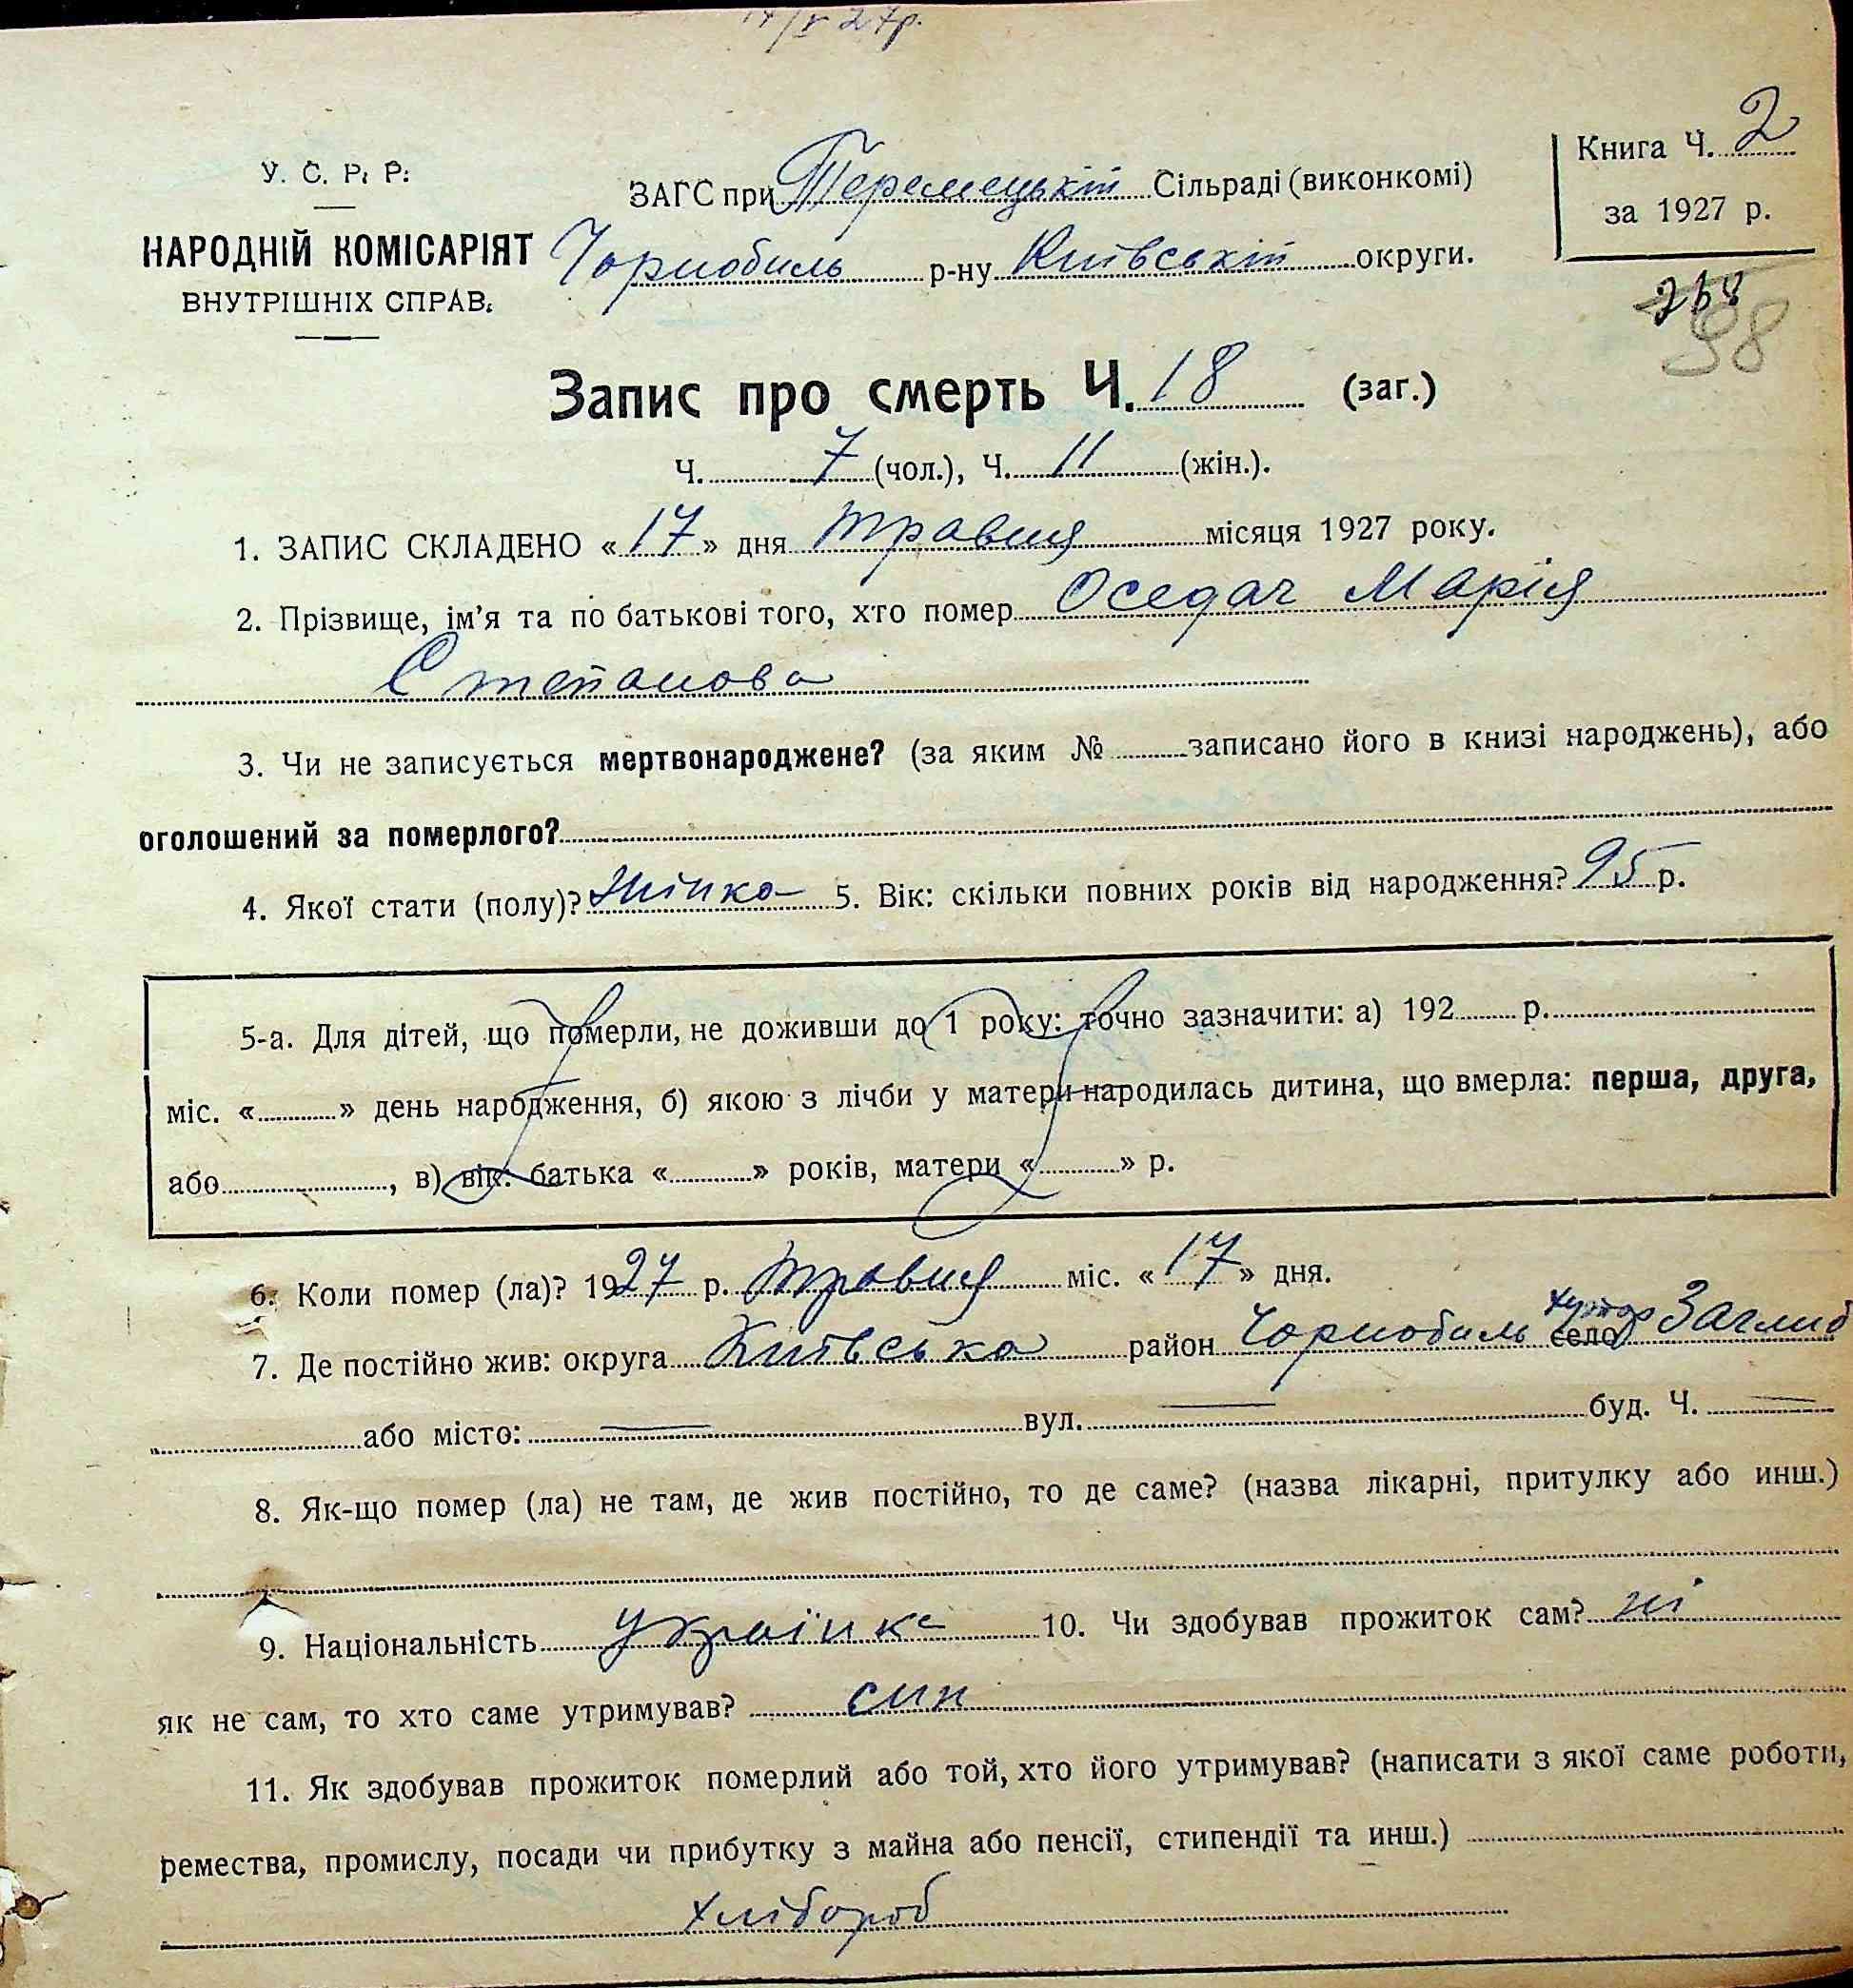 17/V 27р.
Книга Ч. 2
за 1927 р.
98
У. С. Р. Р.
НАРОДНІЙ КОМІСАРІЯТ
ВНУТРІШНІХ СПРАВ.
ЗАГС при Теремецькій Сільраді (виконкомі)
Чорнобиль р-ну Київській округи.
Запис про смерть Ч. 18 (заг.)
Ч. 7 (чол.), Ч. 11 (жін.).
1. ЗАПИС СКЛАДЕНО «17» дня травня місяця 1927 року.
2. Прізвище, ім’я та по батькові того, хто помер Оседач Марія
Степанова
3. Чи не записується мертвонароджене? (за яким № записано його в книзі народжень), або
оголошений за померлого?
4. Якої стати (полу)? жінка 5. Вік: скільки повних років від народження? 95 р.
5-а. Для дітей, що померли, не доживши до 1 року: точно зазначити: а) 192 р.
міс. « » день народження, б) якою з лічби у матери народилась дитина, що вмерла: перша, друга,
або , в) вік: батька « » років, матери « » р.
6. Коли помер (ла)? 1927 р. травня міс. «17» дня.
7. Де постійно жив: округа Київська район Чорнобиль село хутор Заглиб
або місто: — вул. — буд. Ч. —
8. Як-що помер (ла) не там, де жив постійно, то де саме? (назва лікарні, притулку або инш.)
9. Національність українка 10. Чи здобував прожиток сам? ні
як не сам, то хто саме утримував? син
11. Як здобував прожиток померлий або той, хто його утримував? (написати з якої саме роботи,
ремества, промислу, посади чи прибутку з майна або пенсії, стипендії та инш.)
хлібороб